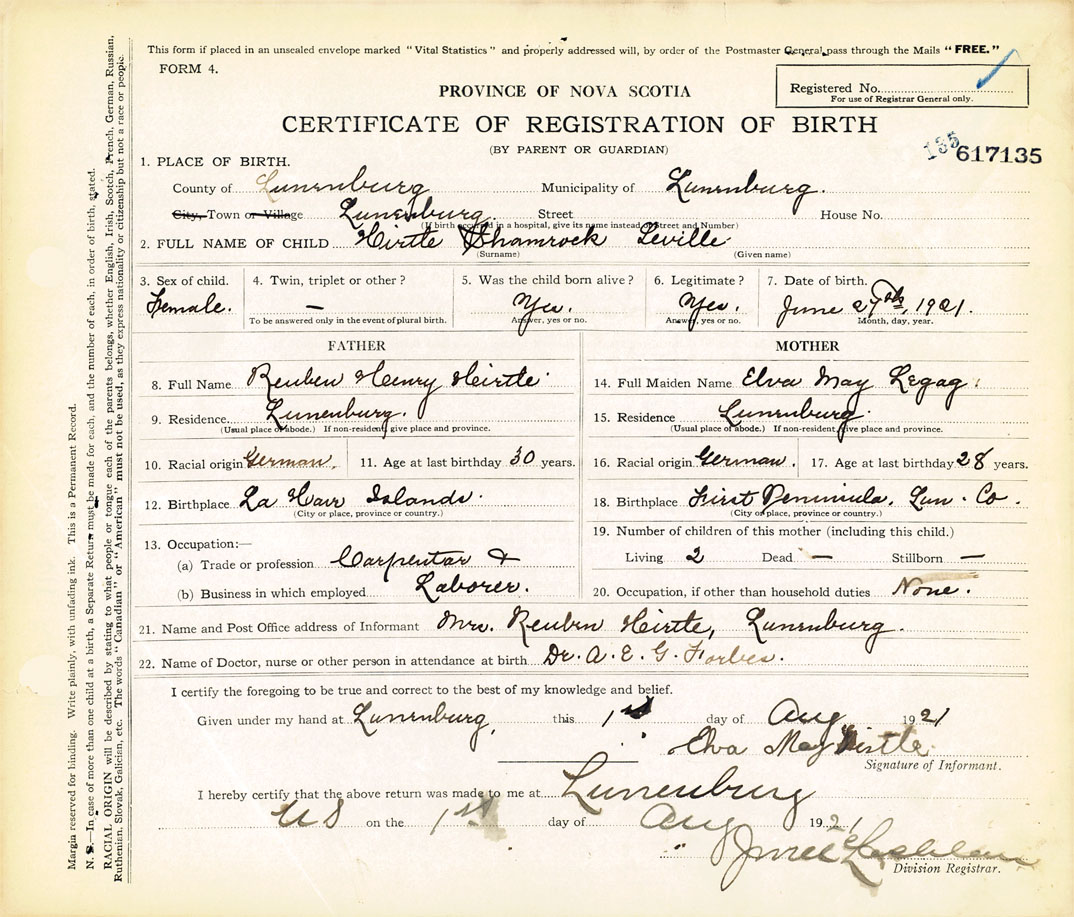 This form if placed in an unsealed envelope marked "Vital Statistics" and properly addressed will, by order of the Postmaster General, pass through the Mails "FREE."
FORM 4.
Registered No.
For use of Registrar General only.
PROVINCE OF NOVA SCOTIA
CERTIFICATE OF REGISTRATION OF BIRTH
(BY PARENT OR GUARDIAN)
135 617135
1. PLACE OF BIRTH.
County of Lunenburg Municipality of Lunenburg.
City, Town or Village Lunenburg. Street House No.
(If birth occurred in a hospital, give its name instead of Street and Number)
2. FULL NAME OF CHILD Hirtle Shamrock Leville
(Surname) (Given name)
3. Sex of child. 4. Twin, triplet or other? 5. Was the child born alive? 6. Legitimate? 7. Date of birth.
Female. — Yes. Yes. June 27th, 1921.
To be answered only in the event of plural birth. Answer, yes or no. Answer, yes or no. Month, day, year.
FATHER MOTHER
8. Full Name Reuben Henry Heirtle 14. Full Maiden Name Elva May Legag.
9. Residence. Lunenburg. 15. Residence Lunenburg.
(Usual place of abode.) If non-resident, give place and province. (Usual place of abode.) If non-resident, give place and province.
10. Racial origin German. 11. Age at last birthday 30 years. 16. Racial origin German. 17. Age at last birthday 28 years.
12. Birthplace La Have Islands. 18. Birthplace First Peninsula. Lun. Co.
(City or place, province or country.) (City or place, province or country.)
19. Number of children of this mother (including this child.)
13. Occupation:—
(a) Trade or profession Carpentar & Living 2 Dead — Stillborn —
(b) Business in which employed Laborer. 20. Occupation, if other than household duties None.
21. Name and Post Office address of Informant Mrs. Reuben Heirtle, Lunenburg.
22. Name of Doctor, nurse or other person in attendance at birth Dr. A. E. G. Forbes.
I certify the foregoing to be true and correct to the best of my knowledge and belief.
Given under my hand at Lunenburg, this 1st day of Aug 1921
Elva May Hirtle
Signature of Informant.
I hereby certify that the above return was made to me at Lunenburg
NS on the 1st day of Aug 1921
Division Registrar.
Margin reserved for binding. Write plainly, with unfading ink. This is a Permanent Record.
N. B.—In case of more than one child at a birth, a Separate Return must be made for each, and the number of each, in order of birth, stated.
RACIAL ORIGIN will be described by stating to what people or tongue each of the parents belongs, whether English, Irish, Scotch, French, German, Russian,
Ruthenian, Slovak, Galician, etc. The words "Canadian" or "American" must not be used, as they express nationality or citizenship but not a race or people.